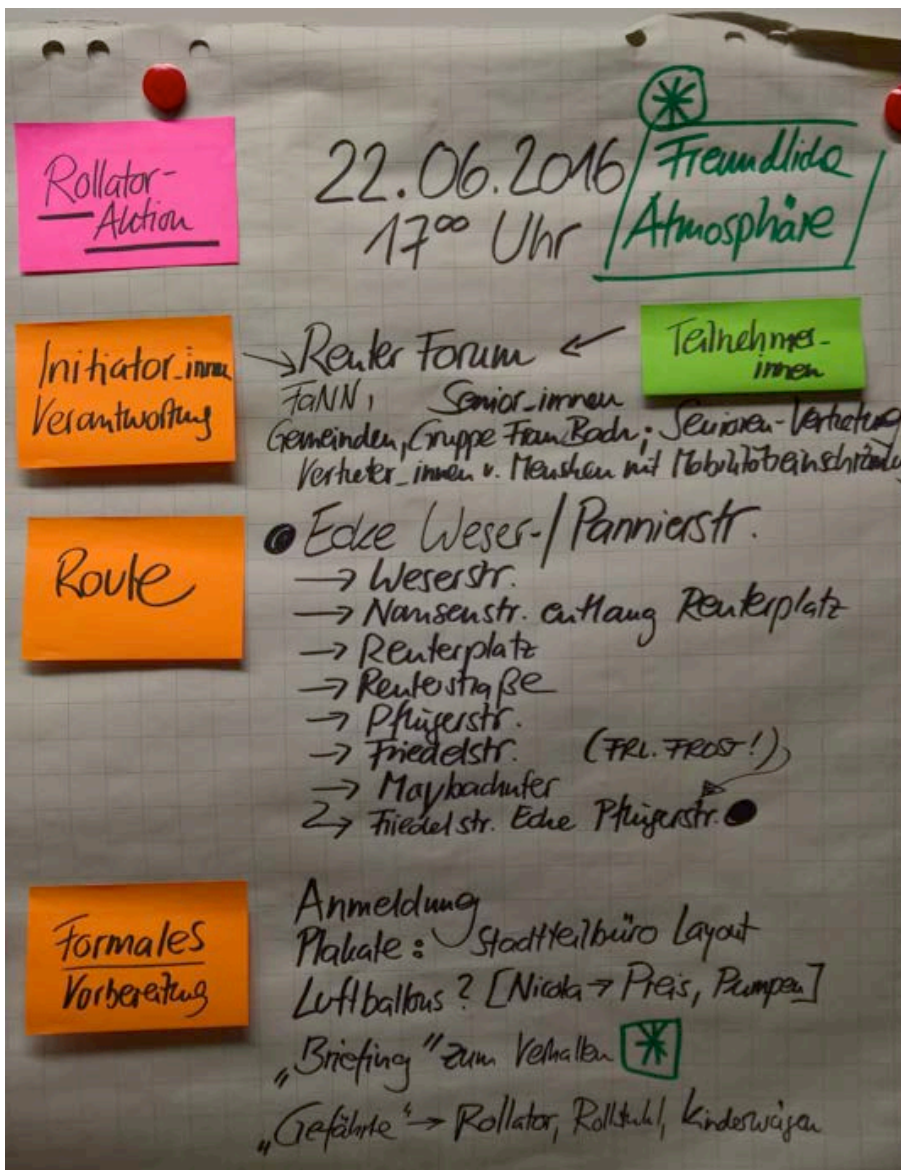 Rollator-
Aktion
22.06.2016
17⁰⁰ Uhr
Freundliche
Atmosphäre
Initiator_innen
Verantwortung
Reuter Forum
Teilnehmer_
innen
FaNN, Senior_innen
Gemeinden, Gruppe Frau Bach; Senioren-Vertretung
Vertreter_innen v. Menschen mit
Route
Ecke Weser-/Pannierstr.
→ Weserstr.
→ Nansenstr. entlang Reuterplatz
→ Reuterplatz
→ Reuterstraße
→ Pflügerstr.
→ Friedelstr. (FRL. FROST!)
→ Maybachufer
→ Friedelstr. Ecke Pflügerstr.
Formales
Vorbereitung
Anmeldung
Plakate: Stadtteilbüro Layout
Luftballons? [Nicola → Preis, Pumpen]
„Briefing" zum Verhalten
„Gefährte" → Rollator, Rollstuhl, Kinderwägen